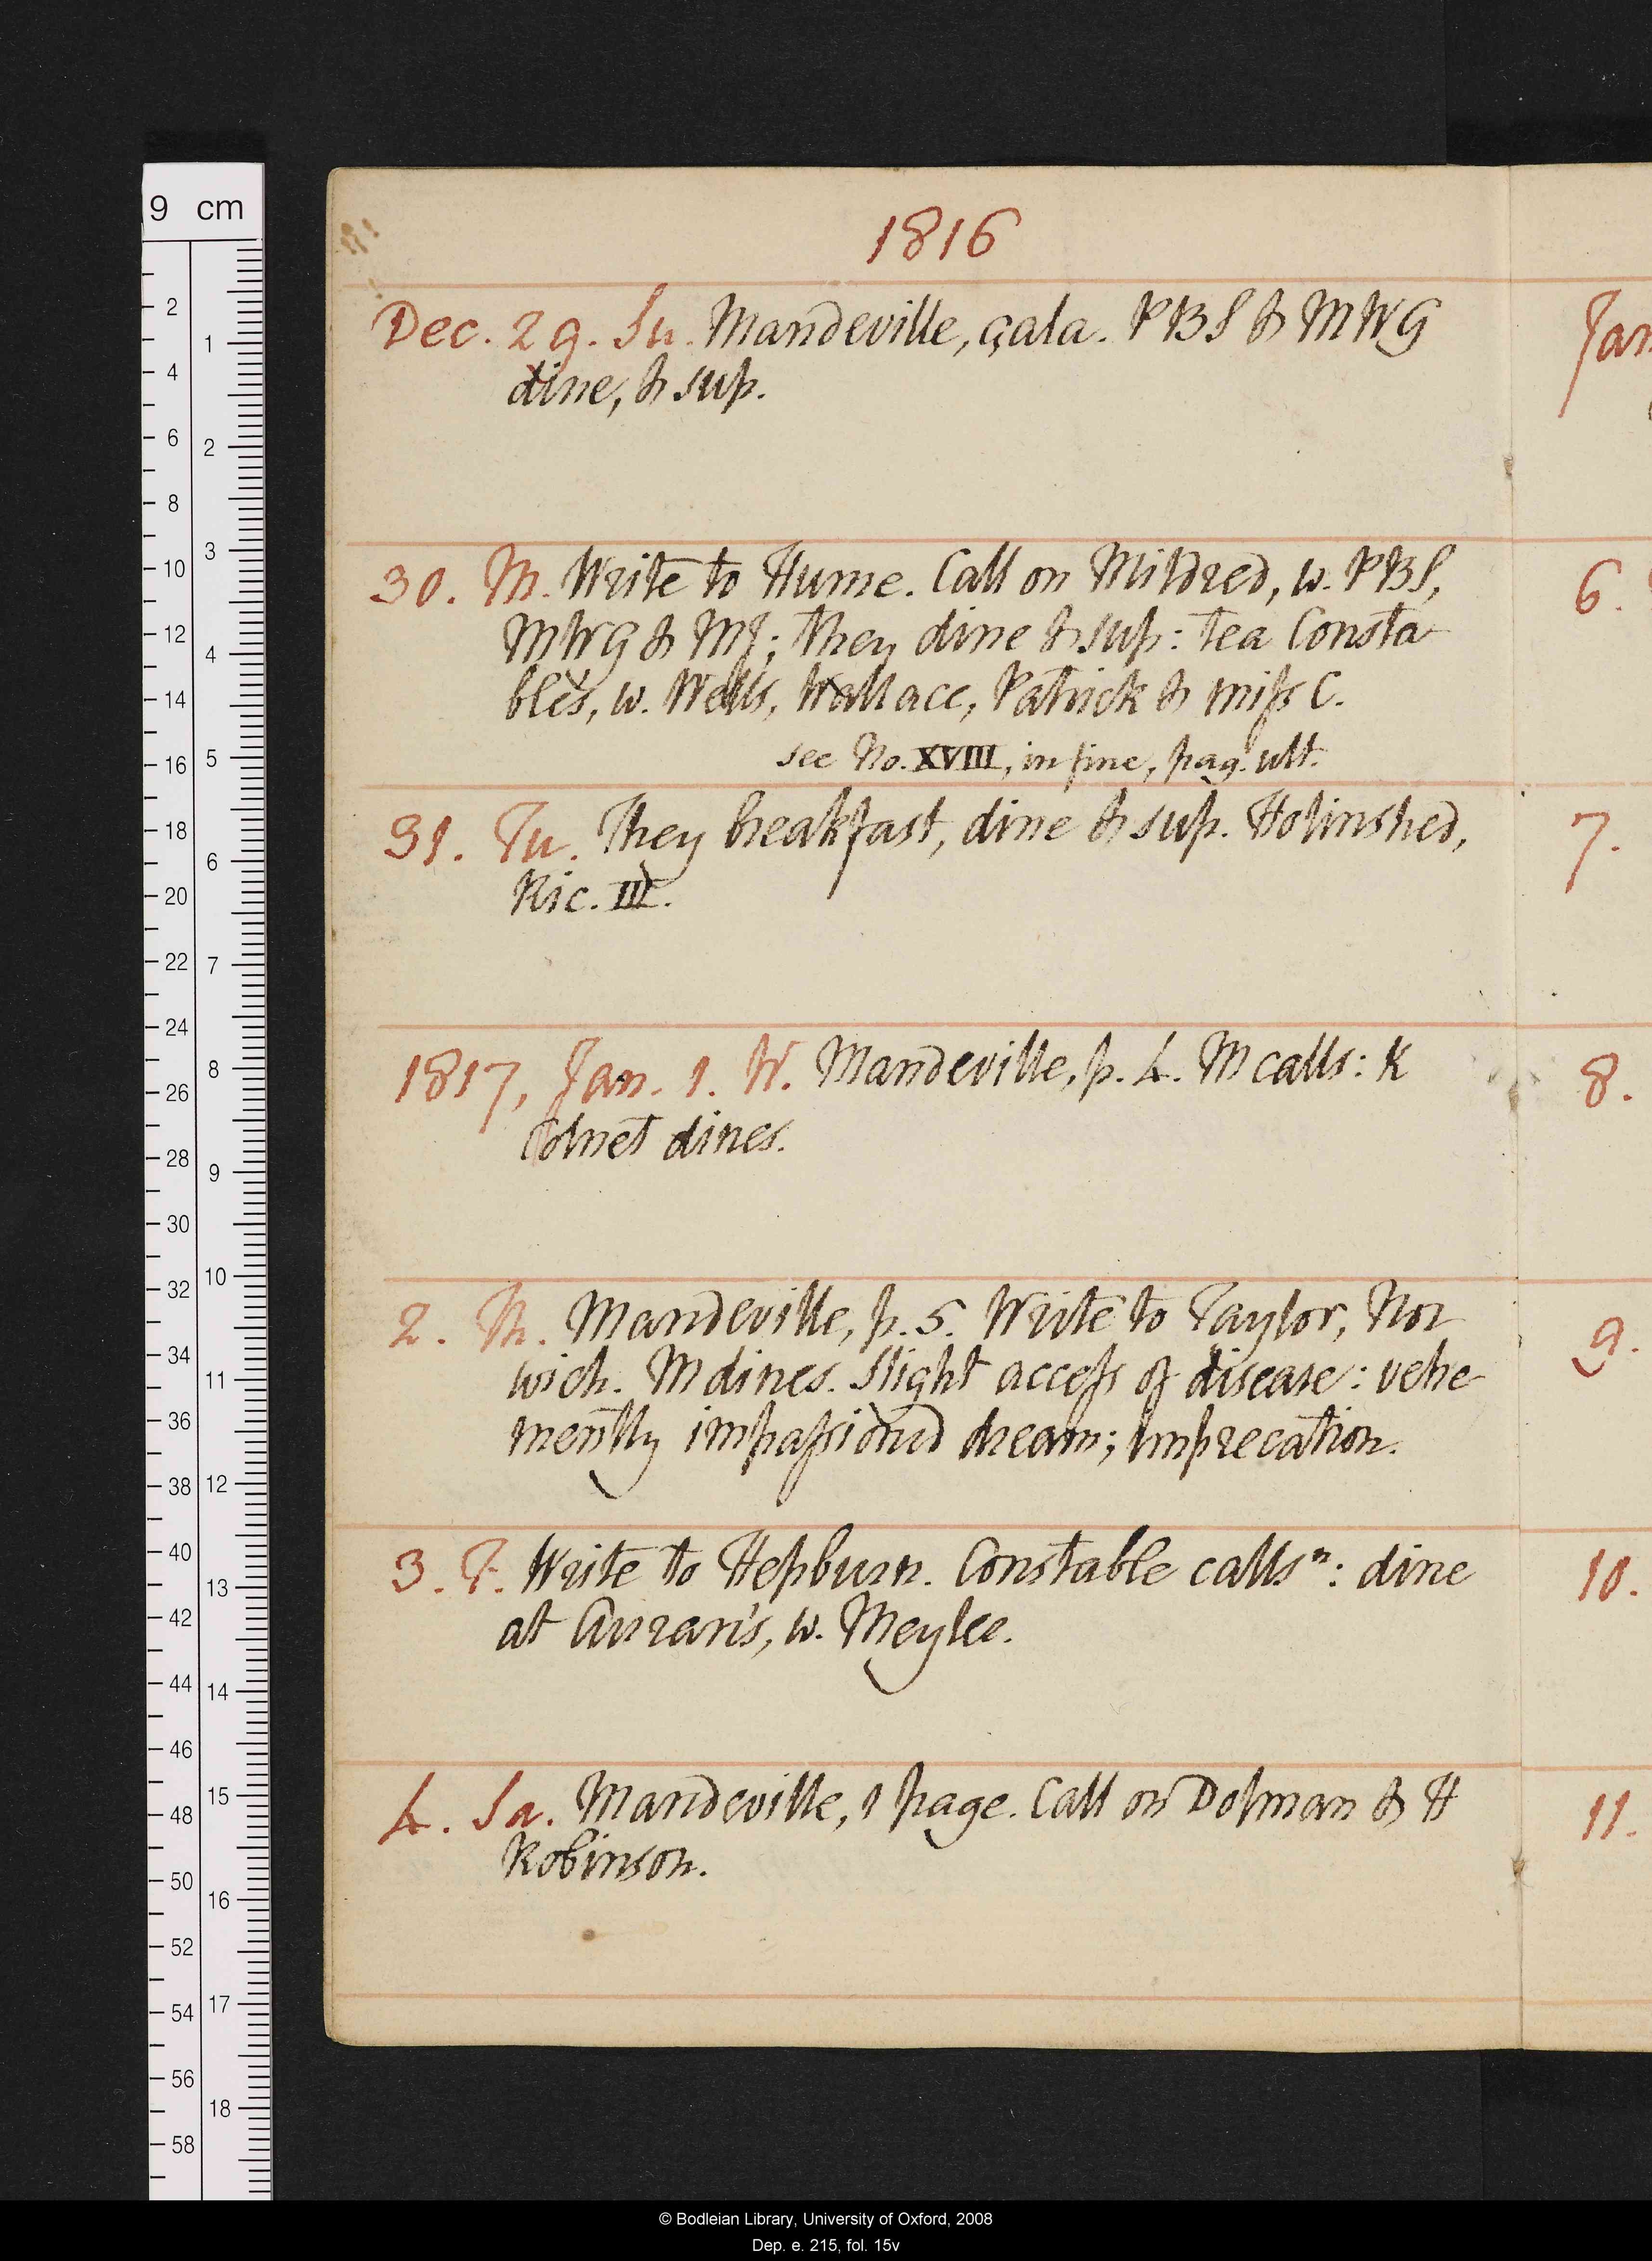 1816
Dec. 29. Su. Mandeville, çala. PBS & MWG
dine, & sup.
30. M. Write to Hume. Call on Mildred, w. PBS,
MWG & MJ; they dine & sup: tea Consta-
ble's, w. Wells, Wallace, Patrick & miss C.
see No. XVIII, in fine, pag. ult.
31. Tu. They breakfast, dine & sup. Holinshed,
Ric. III.
1817, Jan. 1. W. Mandeville, p. 4. M calls: K
Colnet dines.
2. Th. Mandeville, p. 5. Write to Taylor, Nor
wich. M dines. Slight access of disease: vehe-
mently impassiond dream; imprecation.
3. F. Write to Hepburn. Constable calls ⁿ: dine
at Curran's, w. Meylee.
4. Sa. Mandeville, 1 page. Call on Dolman & H
Robinson.
Jan
6.
7.
8.
9.
10.
11.
9 cm
2
4
6
8
10
12
14
16
18
20
22
24
26
28
30
32
34
36
38
40
42
44
46
48
50
52
54
56
58
1
2
3
4
5
6
7
8
9
10
11
12
13
14
15
16
17
18
© Bodleian Library, University of Oxford, 2008
Dep. e. 215, fol. 15v